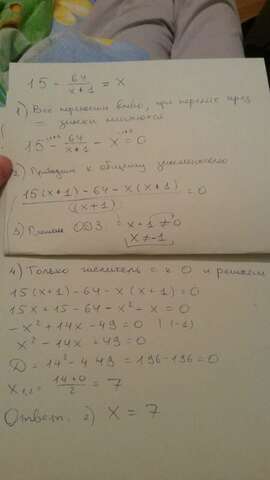 15 - 64/(x+1) = x
1) Все переносим влево, при переносе через
= знаки меняются
15 - 64/(x+1) - x = 0
2) Приводим к общему знаменателю
(15(x+1) - 64 - x(x+1))/(x+1) = 0
3) ОДЗ: x+1 ≠ 0
x ≠ -1
4) Только числитель = к 0 и решаем
15(x+1) - 64 - x(x+1) = 0
15x + 15 - 64 - x² - x = 0
-x² + 14x - 49 = 0 | (-1)
x² - 14x + 49 = 0
D = 14² - 4·49 = 196 - 196 = 0
x₁,₂ = (14+0)/2 = 7
Ответ. 2) x = 7